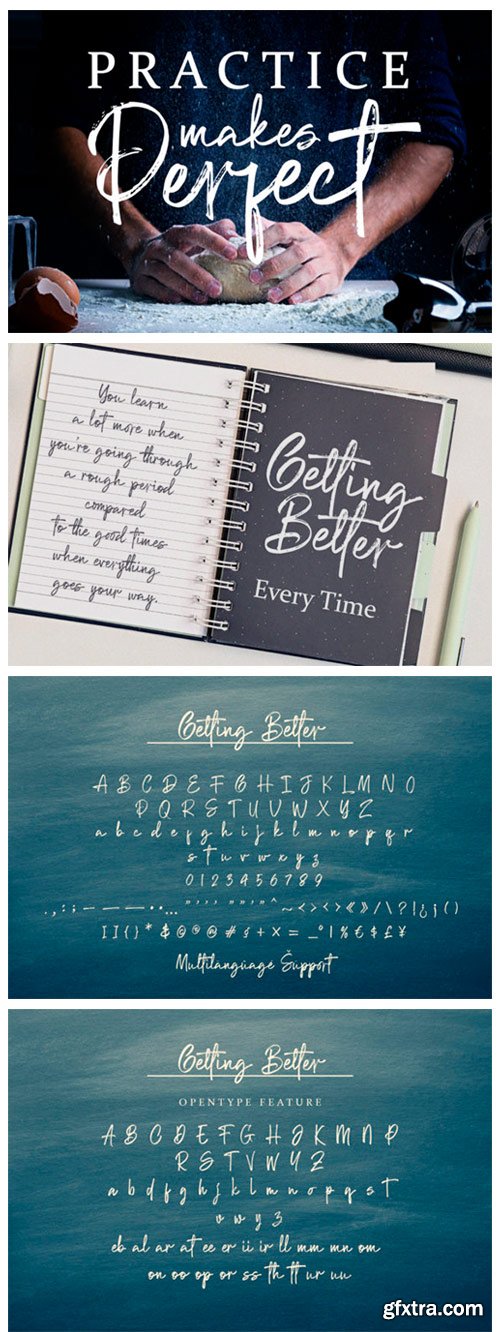 PRACTICE
makes
Perfect
You learn
a lot more when
you're going through
a rough period
compared
to the good times
when everything
goes your way.
Getting
Better
Every Time
Getting Better
A B C D E F G H I J K L M N O
P Q R S T U V W X Y Z
a b c d e f g h i j k l m n o p q r
s t u v w x y z
0 1 2 3 4 5 6 7 8 9
Multilanguage Šupport
Getting Better
OPENTYPE FEATURE
A B C D E F G H J K M N P
R S T V W Y Z
a b d f g h j k l m n o p q s t
v w y z
eb al ar at ee er ii ir ll mm mn om
on oo op or ss th tt ur uu
gfxtra.com